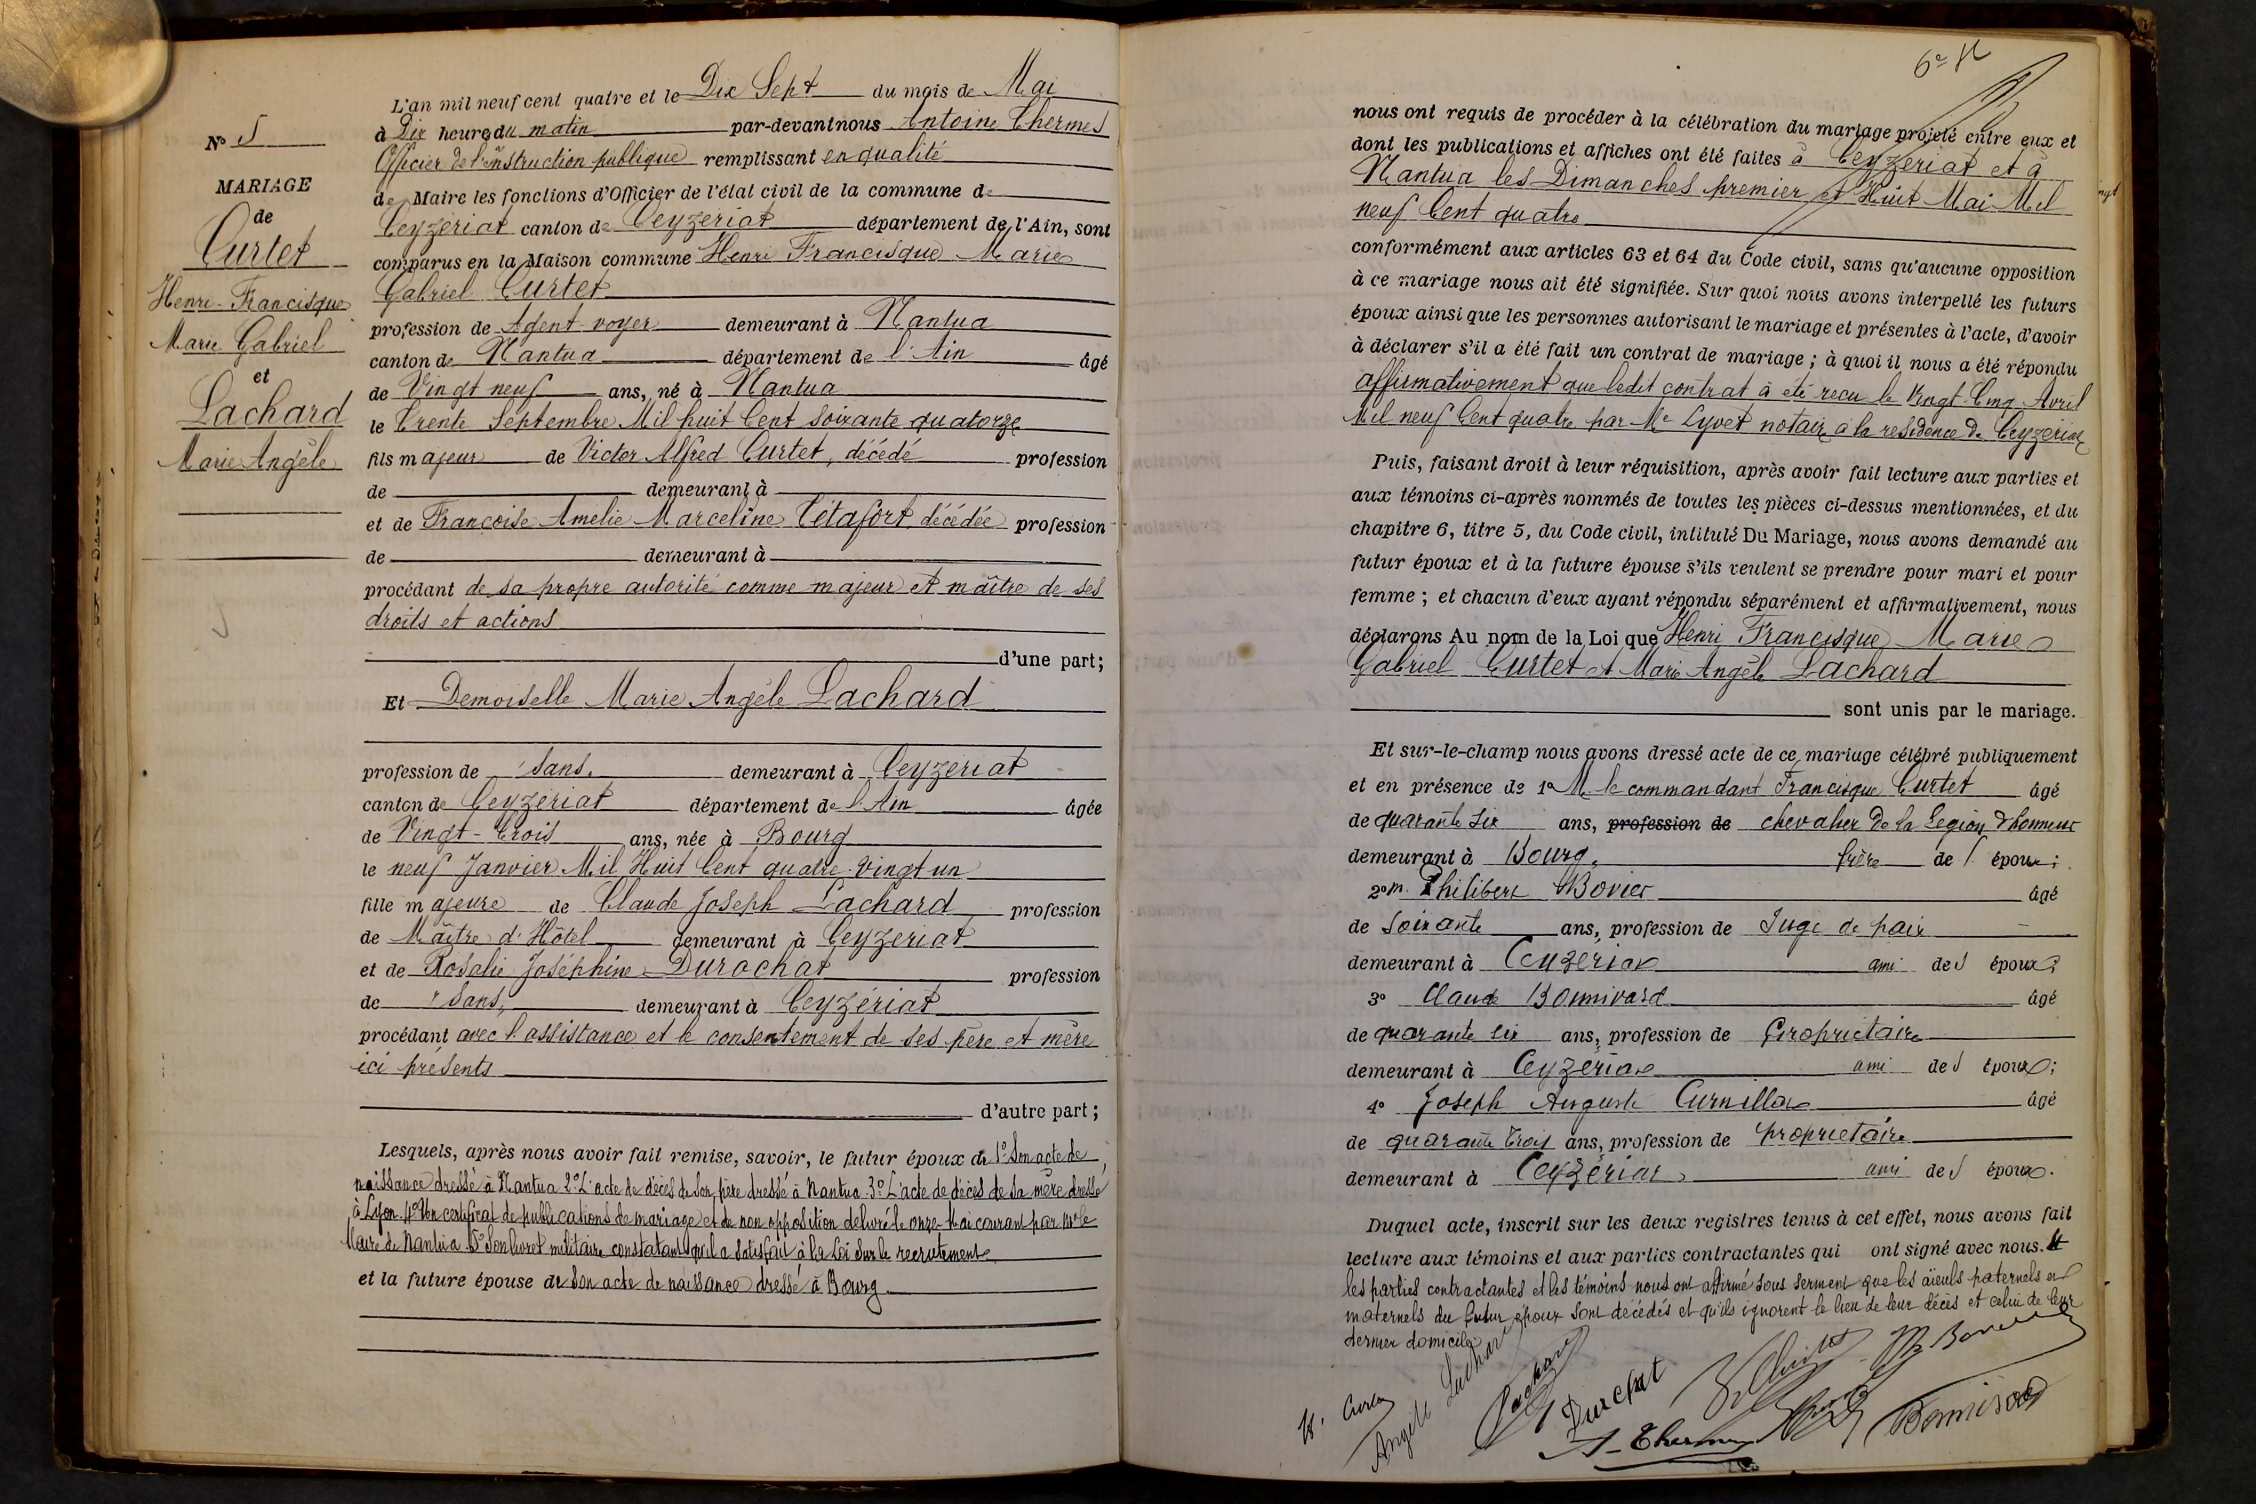 N° 5
MARIAGE
de
Curtet
Henri-Francisque
Marie Gabriel
et
Lachard
Marie Angèle
L'an mil neuf cent quatre et le Dix Sept du mois de Mai
à Dix heures du matin par-devant nous Antoine Thermes
Officier de l'Instruction publique remplissant en qualité
de Maire les fonctions d'Officier de l'état civil de la commune de
Ceyzériat canton de Ceyzériat département de l'Ain, sont
comparus en la Maison commune Henri Francisque Marie
Gabriel Curtet
profession de Agent voyer demeurant à Nantua
canton de Nantua département de l'Ain âgé
de Vingt neuf ans, né à Nantua
le trente Septembre Mil huit Cent soixante quatorze
fils majeur de Victor Alfred Curtet, décédé profession
de demeurant à
et de Françoise Amelie Marceline Tétafort décédée profession
de demeurant à
procédant de sa propre autorité comme majeur et maître de ses
droits et actions
d'une part;
Et Demoiselle Marie Angèle Lachard
profession de sans. demeurant à Ceyzériat
canton de Ceyzériat département de l'Ain âgée
de Vingt-trois ans, née à Bourg
le neuf Janvier Mil Huit Cent quatre-vingt un
fille majeure de Claude Joseph Lachard profession
de Maître d'Hôtel demeurant à Ceyzériat
et de Rosalie Joséphine Durochat profession
de sans, demeurant à Ceyzériat
procédant avec l'assistance et le consentement de ses père et mère
ici présents
d'autre part;
Lesquels, après nous avoir fait remise, savoir, le futur époux de 1° Son acte de
naissance dressé à Nantua 2° L'acte de décès de son père dressé à Nantua 3° L'acte de décès de sa mère dressé
à Lyon. 4° Un certificat de publications de mariage et de non opposition délivré le onze Mai courant par Mr le
Maire de Nantua 5° Son livret militaire constatant qu'il a satisfait à la Loi sur le recrutement
et la future épouse de Son acte de naissance dressé à Bourg
6e
nous ont requis de procéder à la célébration du mariage projeté entre eux et
dont les publications et affiches ont été faites à Ceyzériat et à
Nantua les Dimanches premier et Huit Mai Mil
neuf Cent quatre
conformément aux articles 63 et 64 du Code civil, sans qu'aucune opposition
à ce mariage nous ait été signifiée. Sur quoi nous avons interpellé les futurs
époux ainsi que les personnes autorisant le mariage et présentes à l'acte, d'avoir
à déclarer s'il a été fait un contrat de mariage; à quoi il nous a été répondu
affirmativement que ledit contrat à été recu le Vingt-Cinq Avril
Mil neuf Cent quatre par Me Lyvet notaire à la résidence de Ceyzériat
Puis, faisant droit à leur réquisition, après avoir fait lecture aux parties et
aux témoins ci-après nommés de toutes les pièces ci-dessus mentionnées, et du
chapitre 6, titre 5, du Code civil, intitulé Du Mariage, nous avons demandé au
futur époux et à la future épouse s'ils veulent se prendre pour mari et pour
femme; et chacun d'eux ayant répondu séparément et affirmativement, nous
déclarons Au nom de la Loi que Henri Francisque Marie
Gabriel Curtet et Marie Angèle Lachard
sont unis par le mariage.
Et sur-le-champ nous avons dressé acte de ce mariage célébré publiquement
et en présence de 1° M. le commandant Francisque Curtet âgé
de quarante six ans, profession de chevalier de la Légion d'honneur
demeurant à Bourg, frère de l'époux;
2° m. Philibert Bovier âgé
de soixante ans, profession de Juge de paix
demeurant à Ceyzériat ami des époux;
3° Claude Bonnivard âgé
de quarante six ans, profession de Propriétaire
demeurant à Ceyzériat ami des époux;
4° Joseph Auguste Curnillon âgé
de quarante trois ans, profession de propriétaire
demeurant à Ceyzériat, ami des époux.
Duquel acte, inscrit sur les deux registres tenus à cet effet, nous avons fait
lecture aux témoins et aux parties contractantes qui ont signé avec nous. Et
les parties contractantes et les témoins nous ont affirmé sous serment que les aïeuls paternels et
maternels du futur époux sont décédés et qu'ils ignorent le lieu de leur décès et celui de leur
dernier domicile
H. Curtet
Angèle Lachard
Lachard
Durochat
A. Thermes
Bonnivard